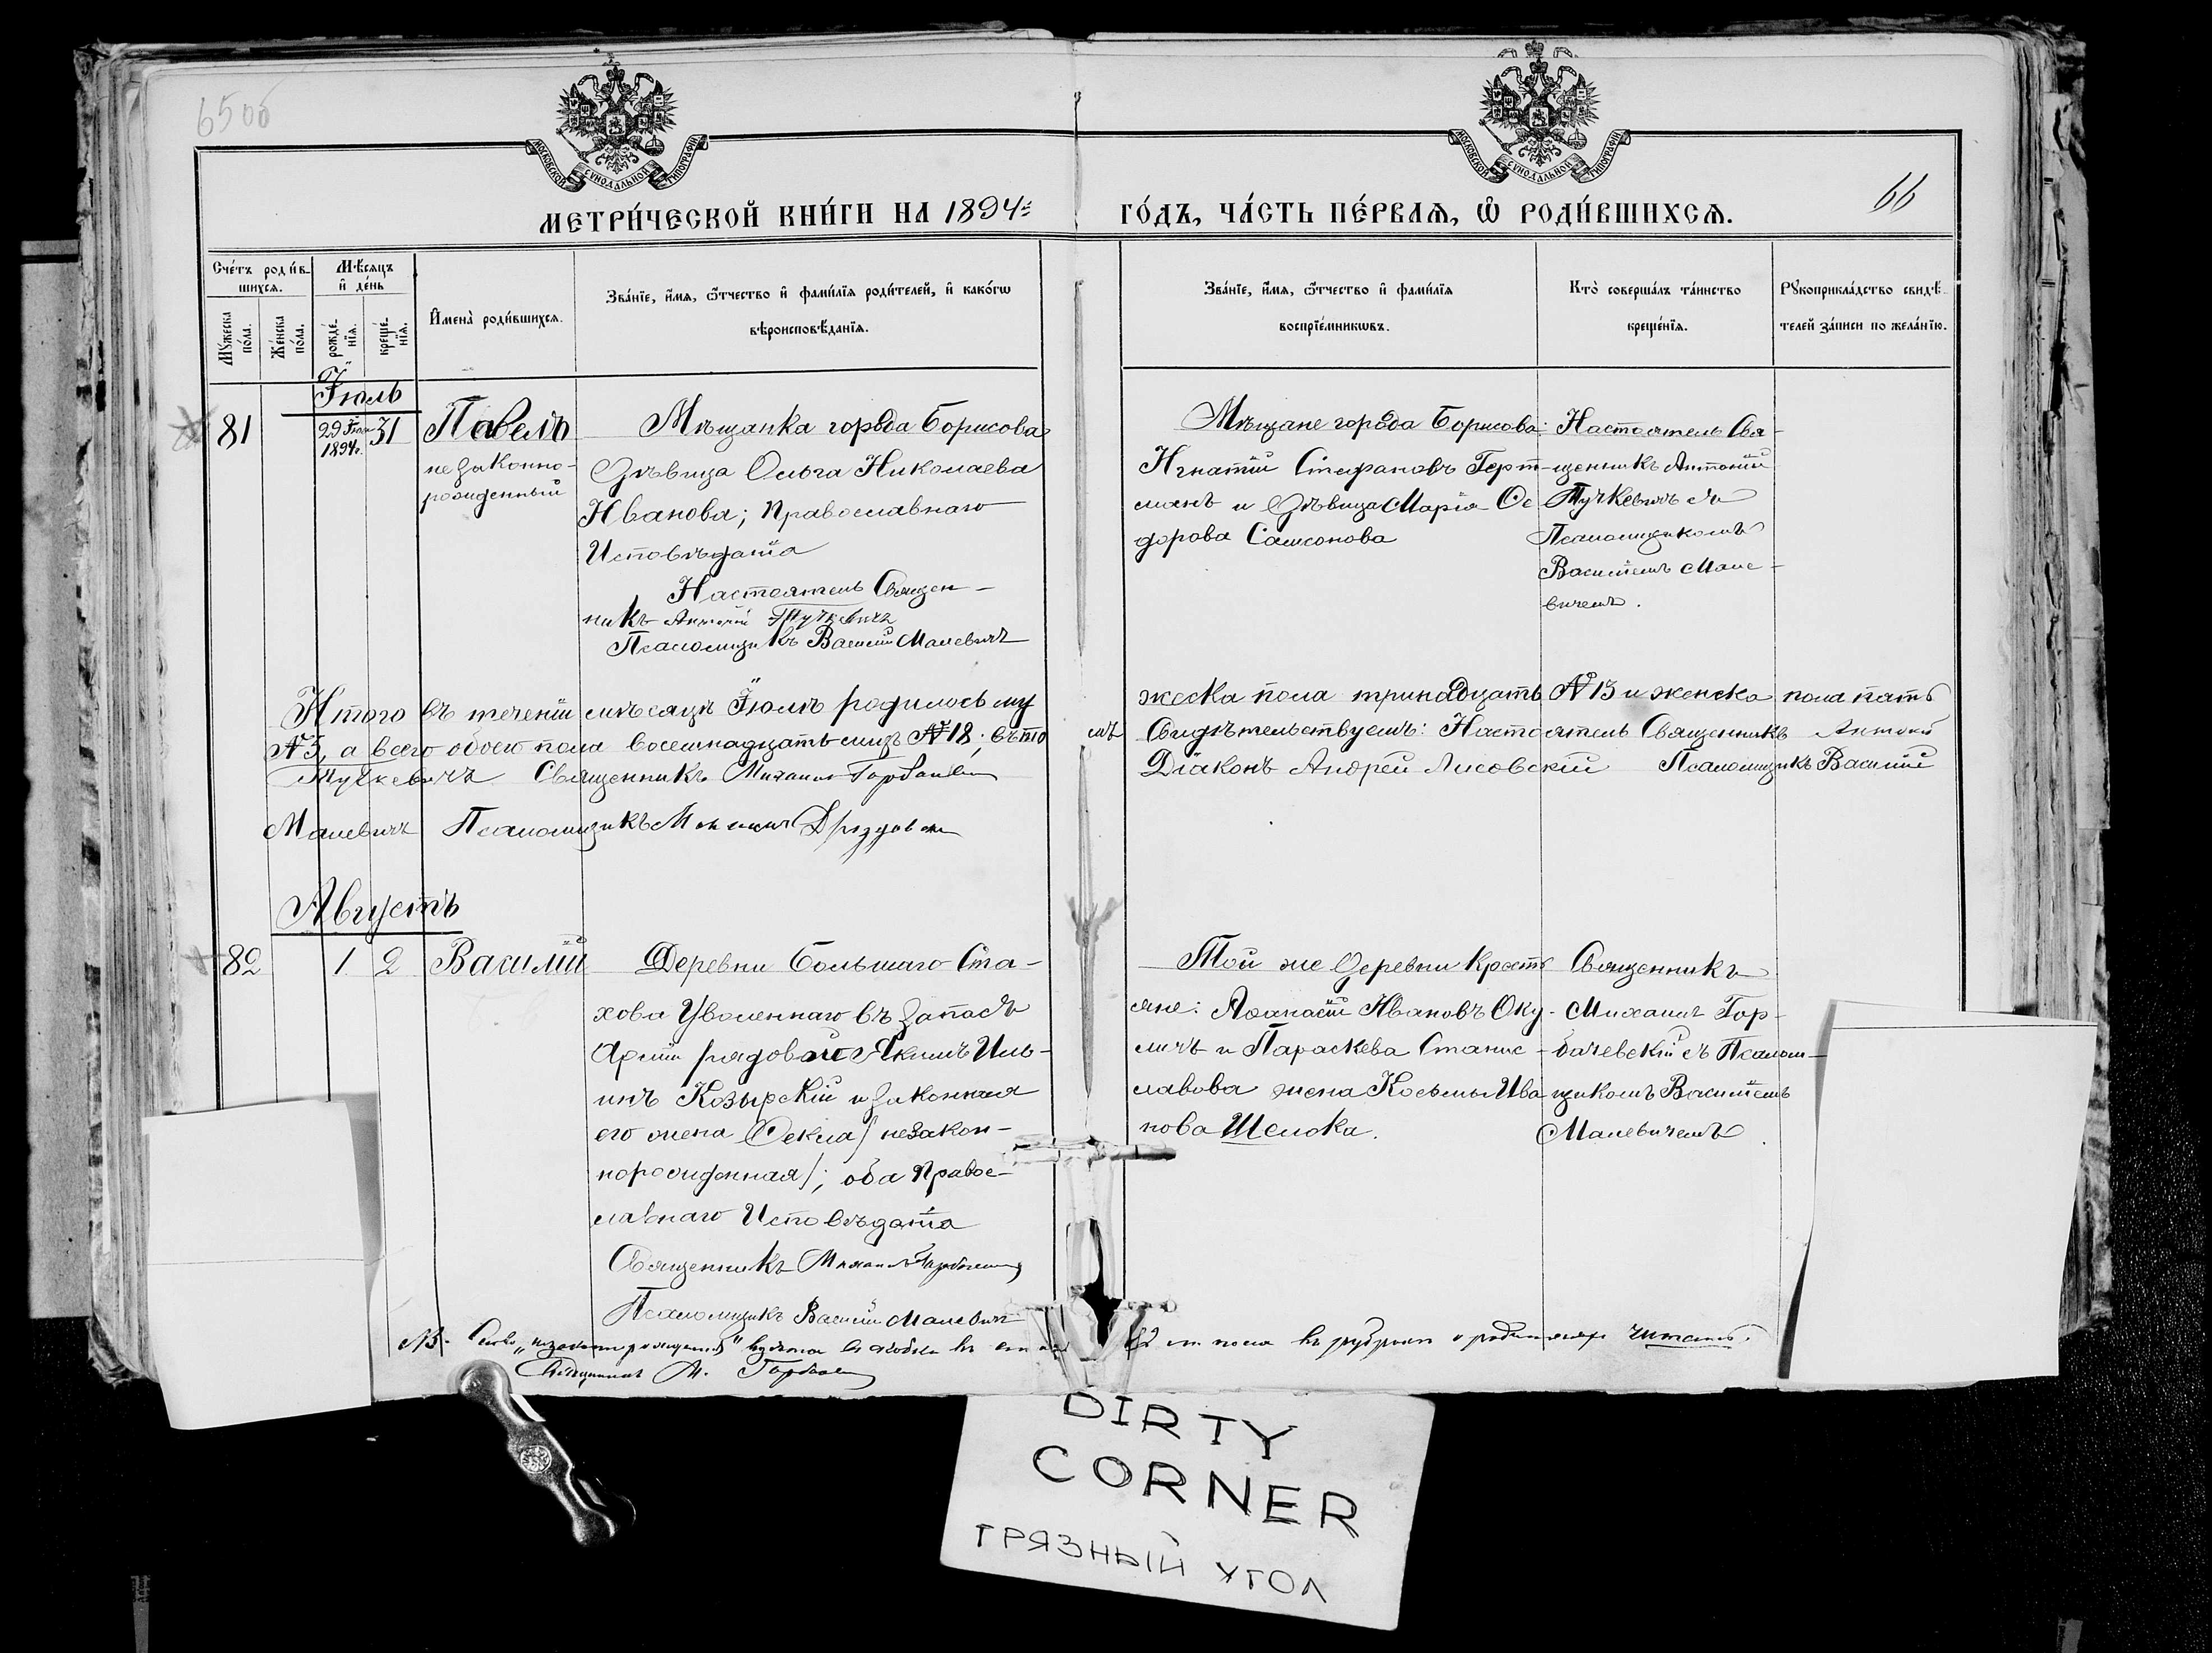 65об
МОСКОВСКОЙ СУНОДАЛЬНОЙ ТИПОГРАФІИ
МОСКОВСКОЙ СУНОДАЛЬНОЙ ТИПОГРАФІИ
МЕТРИ́ЧЕСКОЙ КНИ́ГИ НА 1894й
ГО́ДЪ, ЧА́СТЬ ПЕ́РВАѦ, Ѡ҆ РОДИ́ВШИХСѦ.
66
Сче́тъ роди́в-
шихсѧ.
Мꙋ́жеска по́ла.
Же́нска по́ла.
Мѣ́сѧцъ
и҆ де́нь
рожде́-
нїѧ.
креще́-
нїѧ.
И҆мена̀ роди́вшихсѧ.
Зва́нїе, и҆́мѧ, ѻ҆́тчество и҆ фами́лїѧ роди́телей, и҆ како́гѡ
вѣроисповѣ́данїѧ.
Зва́нїе, и҆́мѧ, ѻ҆́тчество и҆ фами́лїѧ
воспрїе́мникѡвъ.
Кто̀ соверша́лъ та́инство
креще́нїѧ.
Рꙋкоприкла́дство свидѣ́-
телей за́писи по жела́нїю.
Іюль
81
29 Іюн
1894г.
31
Павелъ
незаконно-
рожденный
Мѣщанка города Борисова
дѣвица Ольга Николаева
Иванова; Православнаго
Исповѣданія
Настоятель Священ-
никъ Антоній Тучкевичъ
Псаломщикъ Василій Малевичъ
Мѣщане города Борисова:
Игнатій Стефановъ Герт-
манъ и дѣвица Марія Ѳе
дорова Самсонова
Настоятель Свя-
щенникъ Антоній
Тучкевичъ съ
Псаломщикомъ
Василіемъ Мале-
вичемъ.
Итого въ теченіи мѣсяцѣ Іюлѣ родилось му
жеска пола тринадцать №13 и женска пола пять
№5, а всего обоего пола восемнадцать лицъ №18; въ томъ
Свидѣтельствуемъ: Настоятель Священникъ Антоній
Тучкевичъ Священникъ Михаилъ Горбачевскій
Діаконъ Андрей Лисовскій Псаломщикъ Василій
Малевичъ Псаломщикъ
Августъ
82
1
2
Василій
Деревни Большаго Ста-
хова Уволеннаго въ запасъ
Арміи рядовой Якимъ Иль-
инъ Козырскій и законная
его жена Ѳекла/незакон-
норожденная/; оба Правос-
лавнаго Исповѣданія
Священникъ Михаилъ Горбачевскій
Псаломщикъ Василій Малевичъ
Той же деревни Крестъ
яне: Аѳанасій Ивановъ Оку-
личъ и Параскева Станис-
лавова жена Косьмы Ива
нова Шелока.
Священникъ
Михаилъ Гор-
бачевскій съ Псалом-
щикомъ Василіемъ
Малевичемъ
NB. Слово „незаконнорожденная" взятое въ скобки въ
82 м. пола въ рубрикѣ о родителяхъ читать.
Священникъ М. Горбачевскій
DIRTY
CORNER
ГРЯЗНЫЙ УГОЛ